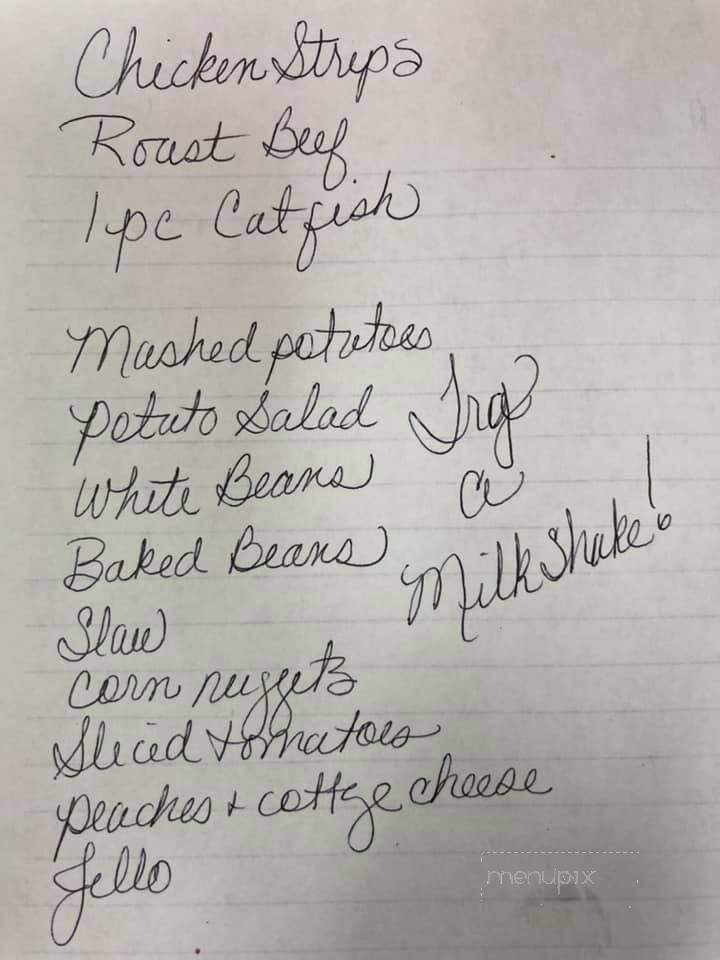 Chicken Strips
Roast Beef
1 pc Catfish
Mashed potatoes
Potato Salad
White Beans
Baked Beans
Slaw
Corn nuggets
Sliced tomatoes
peaches + cottge cheese
Jello
Try
a
Milkshake!
menupix